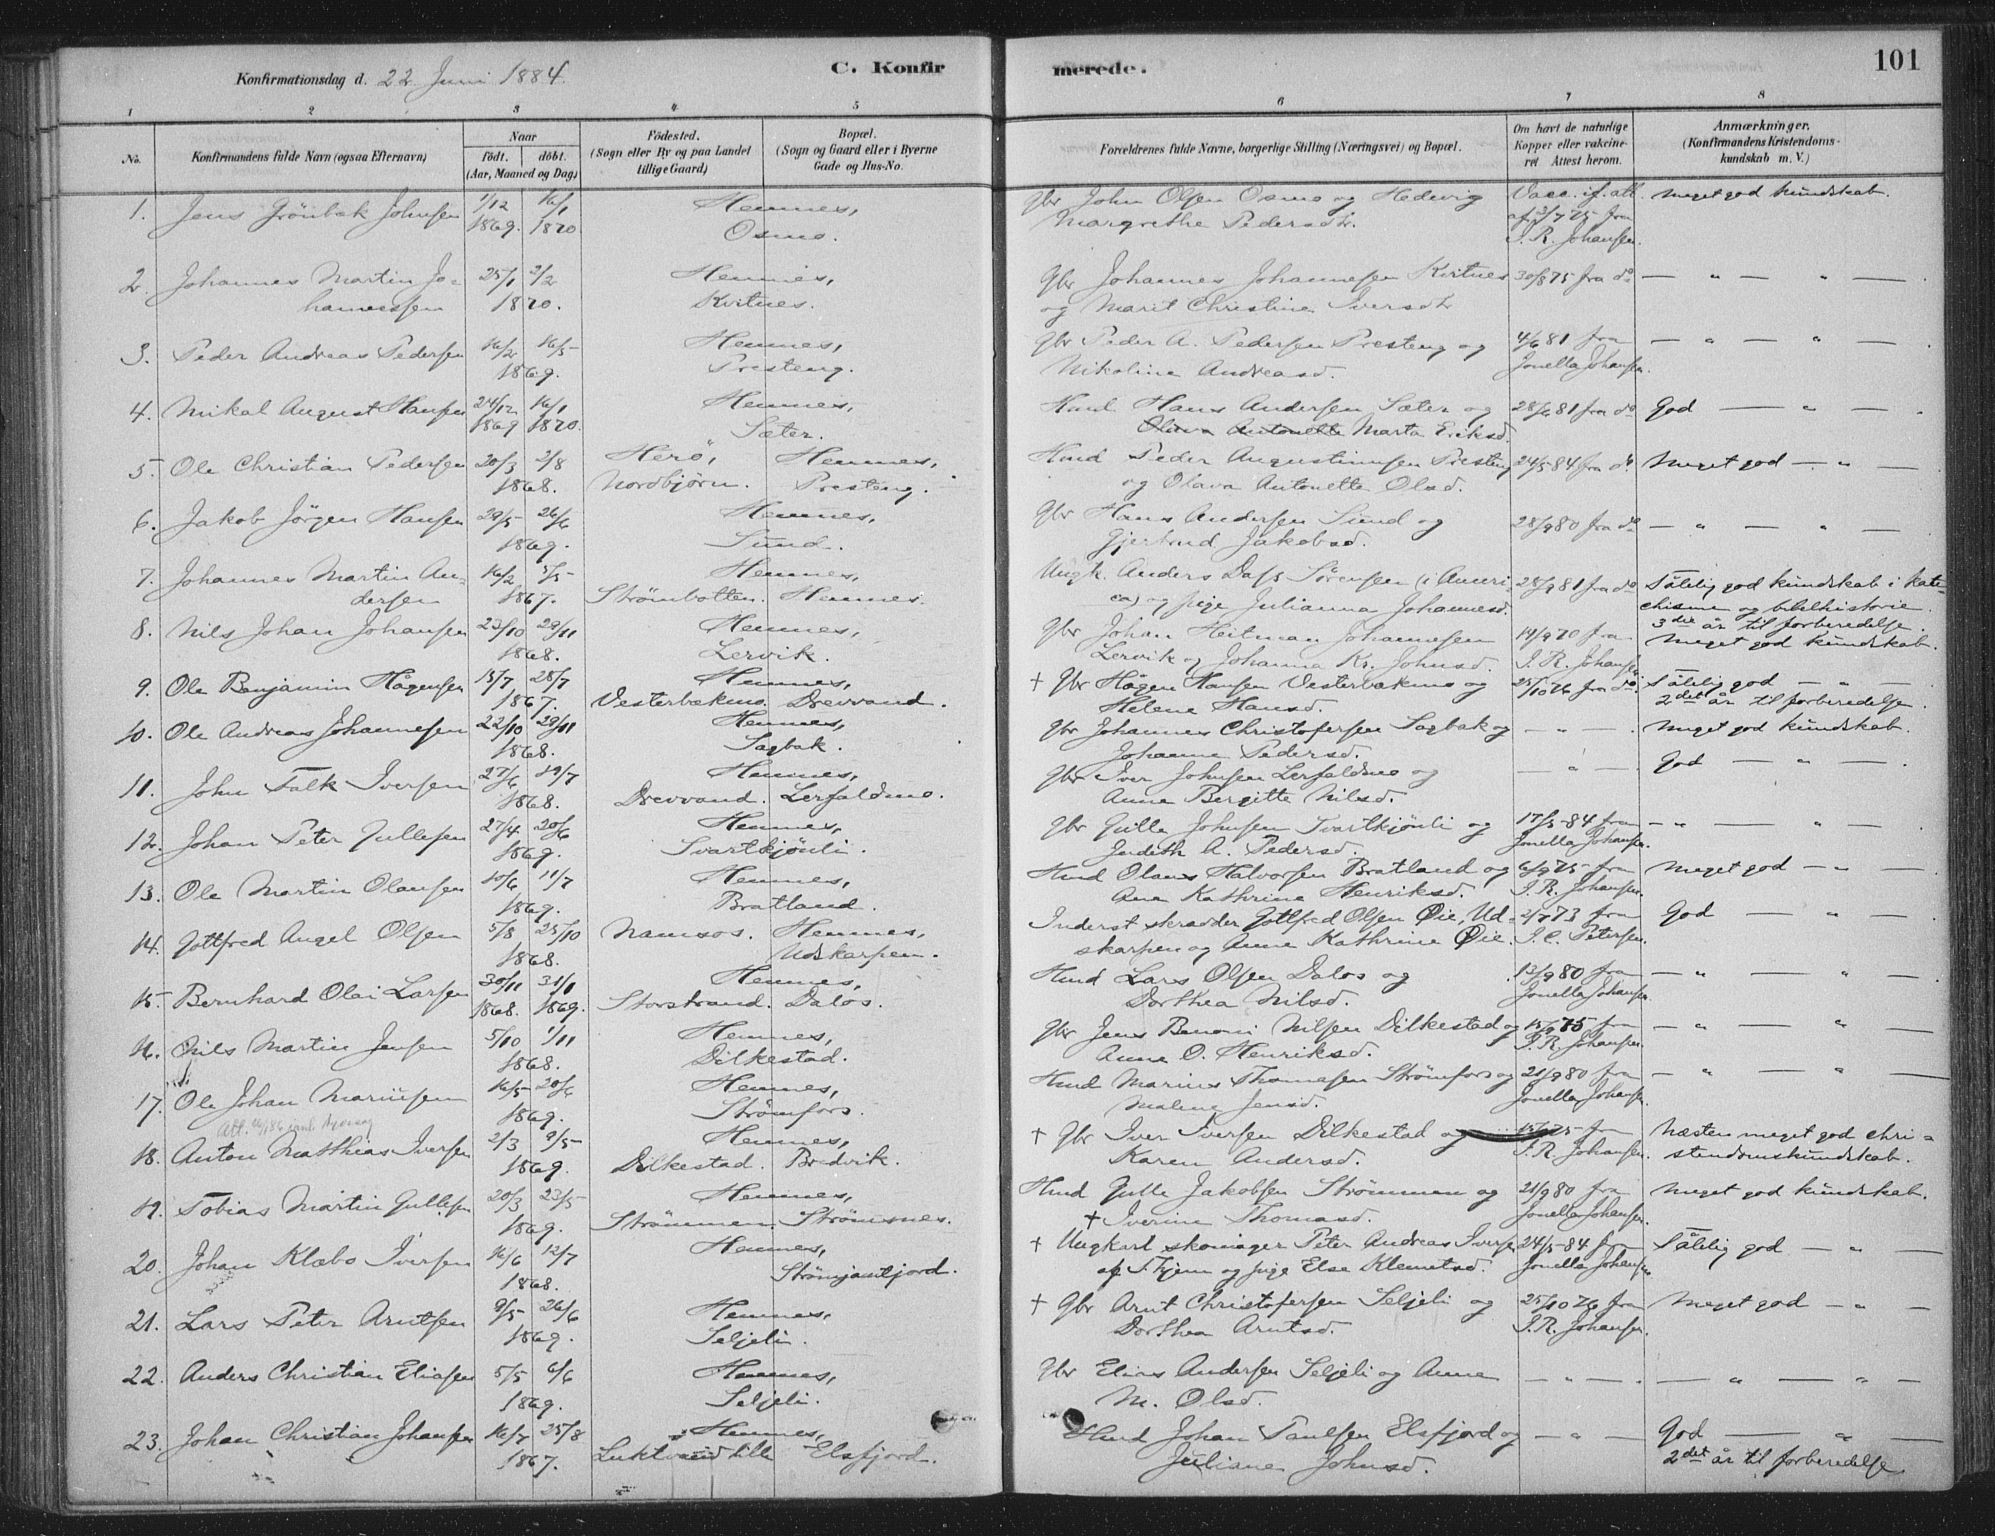 Konfirmationsdag d. 22 Juni 1884.
C. Konfir
merede.
101
1 2 3 4 5 6 7 8
No.
Konfirmandens fulde Navn (ogsaa Efternavn)
Naar
födt. döbt.
(Aar, Maaned og Dag)
Födested.
(Sogn eller By og paa Landet
tillige Gaard)
Bopæl.
(Sogn og Gaard eller i Byerne
Gade og Hus-No.
Forældrenes fulde Navne, borgerlige Stilling (Næringsvei) og Bopæl.
Om havt de naturlige
Kopper eller vakcine-
ret Attest herom.
Anmærkninger.
(Konfirmandens Kristendoms-
kundskab m. V.)
1. Jens Grönbæk Johnsen 1/12 16/1 Hemnes, Gbr John Olsen Osmo og Hedevig Vacc. if. att. Meget god kundskab.
1869. 1870 Osmo. Margrethe Pedersdr. af 3/7 75 fra
J. R. Johansen.
2. Johannes Martin Jo- 25/1 2/2 Hemnes, Gbr Johannes Johannesen Kvitnes 30/8 75 fra do — " — " — .
hannessen 1870. Kvitnes. og Marit Christine Iversdr
3. Peder Andreas Pedersen 16/2 16/5 Hemnes, Gbr Peder A. Pedersen Presteng og 4/6 81 fra — " — " —
1869. Presteng. Nikoline Andreasd. Jonella Johansen.
4. Mikal August Hansen 24/12 16/1 Hemnes, Hmd Hans Andersen Sæter og 28/6 81 fra do God — " — .
1869 1870. Sæter. Olava Antonette Marta Eriksd.
5. Ole Christian Pedersen 20/3 2/8 Herö, Hemnes, Hmd Peder Augustinusen Presteng 24/5-84 fra do. Meget god — " —
1868. Nordbjörn. Presteng. og Olava Antonette Olsd.
6. Jakob Jörgen Hansen 29/5 26/6 Hemnes, Gbr Hans Andersen Sund og 28/9 80 fra do — " — " —
1869. Sund. Gjertrud Jakobsd.
7. Johannes Martin An- 16/2 5/5 Hemnes, Ungk. Anders Dass Sörensen (i Ameri- 28/9 81 fra do Tålelig god kundskab i kate-
dersen 1867. Strömbotten. Hemnes. ca) og pige Julianna Johannesd. chisme og bibelhistorie.
3die år til forberedelse.
8. Nils Johan Johansen 23/10 29/11 Hemnes, Gbr Johan Heitman Johannesen 19/9 70 fra Meget god kundskab.
1868. Lervik. Lervik og Johanna Kr. Johnsd. J. R. Johansen
9. Ole Benjamin Hågensen 15/7 28/7 Hemnes, † Gbr Hågen Hansen Vesterbækmo og 25/10 76 fra do. Tålelig god — " —
1867. Vesterbækmo. Drevvand. Helene Hansd. 2det år til forberedelse.
10. Ole Andreas Johannesen 22/10 29/11 Hemnes, Gbr Johannes Christofersen Sagbak og — " — . Meget god kundskab.
1868. Sagbak. Johanne Pedersd.
11. John Falk Iversen 27/6 19/7 Hemnes, Gbr Iver Johnsen Lerfaldmo og — " — God — " — .
1868. Drevvand. Lerfaldmo. Anne Bergitte Nilsd.
12. Johan Peter Gullesen 27/4 20/6 Hemnes, Gbr Gulle Johnsen Svartkjönli og 17/5-84 fra — " — " —
1869. Svartkjönli. Judeth A. Pedersd. Jonella Johansen.
13. Ole Martin Olausen 10/6 11/7 Hemnes, Hmd Olaus Halvorsen Bratland og 6/9 75 fra Meget god — " —
1869. Bratland. Ane Kathrine Henriksd. J. R. Johansen.
14. Gottfred Angel Olsen 5/8 25/10 Namsos. Hemnes, Inderst skrædder Gottfred Olsen Øie, Ud- 2/7 73 fra God — " —
1868. Udskarpen. skarpen og Anne Kathrine Øie. J. C. Petersen.
15. Bernhard Olai Larsen 30/11 31/1 Hemnes, Hmd Lars Olsen Dalos og 13/9 80 fra — " — " —
1868. 1869. Storstrand. Dalos. Dorthea Nilsd. Jonella Johansen.
16. Nils Martin Jensen 5/10 1/11 Hemnes, Gbr Jens Benoni Nilsen Dilkestad og 15/9 75 fra — " — " —
1868. Dilkestad. Anne O. Henriksd. J. R. Johansen.
17. Ole Johan Mariusen 16/5 20/6 Hemnes, Hmd Marius Thomassen Strömfors og 21/9 80 fra — " — " —
1869. Strömfors. Maline Jensd. Jonella Johansen.
18. Anton Matthias Iversen 2/3 9/5 Hemnes, † Gbr Iver Iversen Dilkestad og 15/9 75 fra Næsten meget god chri-
1869. Dilkestad. Bredvik. Karen Andersd. J. R. Johansen. stendomskundskab.
19. Tobias Martin Gullesen 20/3 23/5 Hemnes, Hmd Gulle Jakobsen Strömmen og 21/9 80 fra Meget god kundskab.
1869. Strömmen. Strömsnes. † Iverine Thomasd. Jonella Johansen.
20. Johan Klæbo Iversen 16/6 12/7 Hemnes, † Ungkarl skomager Peter Andreas Iversen 24/5-84 fra Tålelig god — " —
1868. Strömjamtfjord. af Thjem og pige Else Klemetsd. Jonella Johansen
21. Lars Peter Arntsen 9/5 26/6 Hemnes, † Gbr Arnt Christofersen Seljeli og 25/10 76 fra Meget god — " —
1869. Seljeli. Dorthea Arntsd. J. R. Johansen.
22. Anders Christian Eliasen 5/5 6/6 Hemnes, Gbr Elias Andersen Seljeli og Anne — " — — " — " —
1869. Seljeli. M. Olsd.
23. Johan Christian Johansen 16/7 25/8 Hemnes, Hmd Johan Paulsen Elsfjord og — " — God — " —
1867. Luktvand lille Elsfjord. Juliane Johnsd. 2det år til forberedelse.